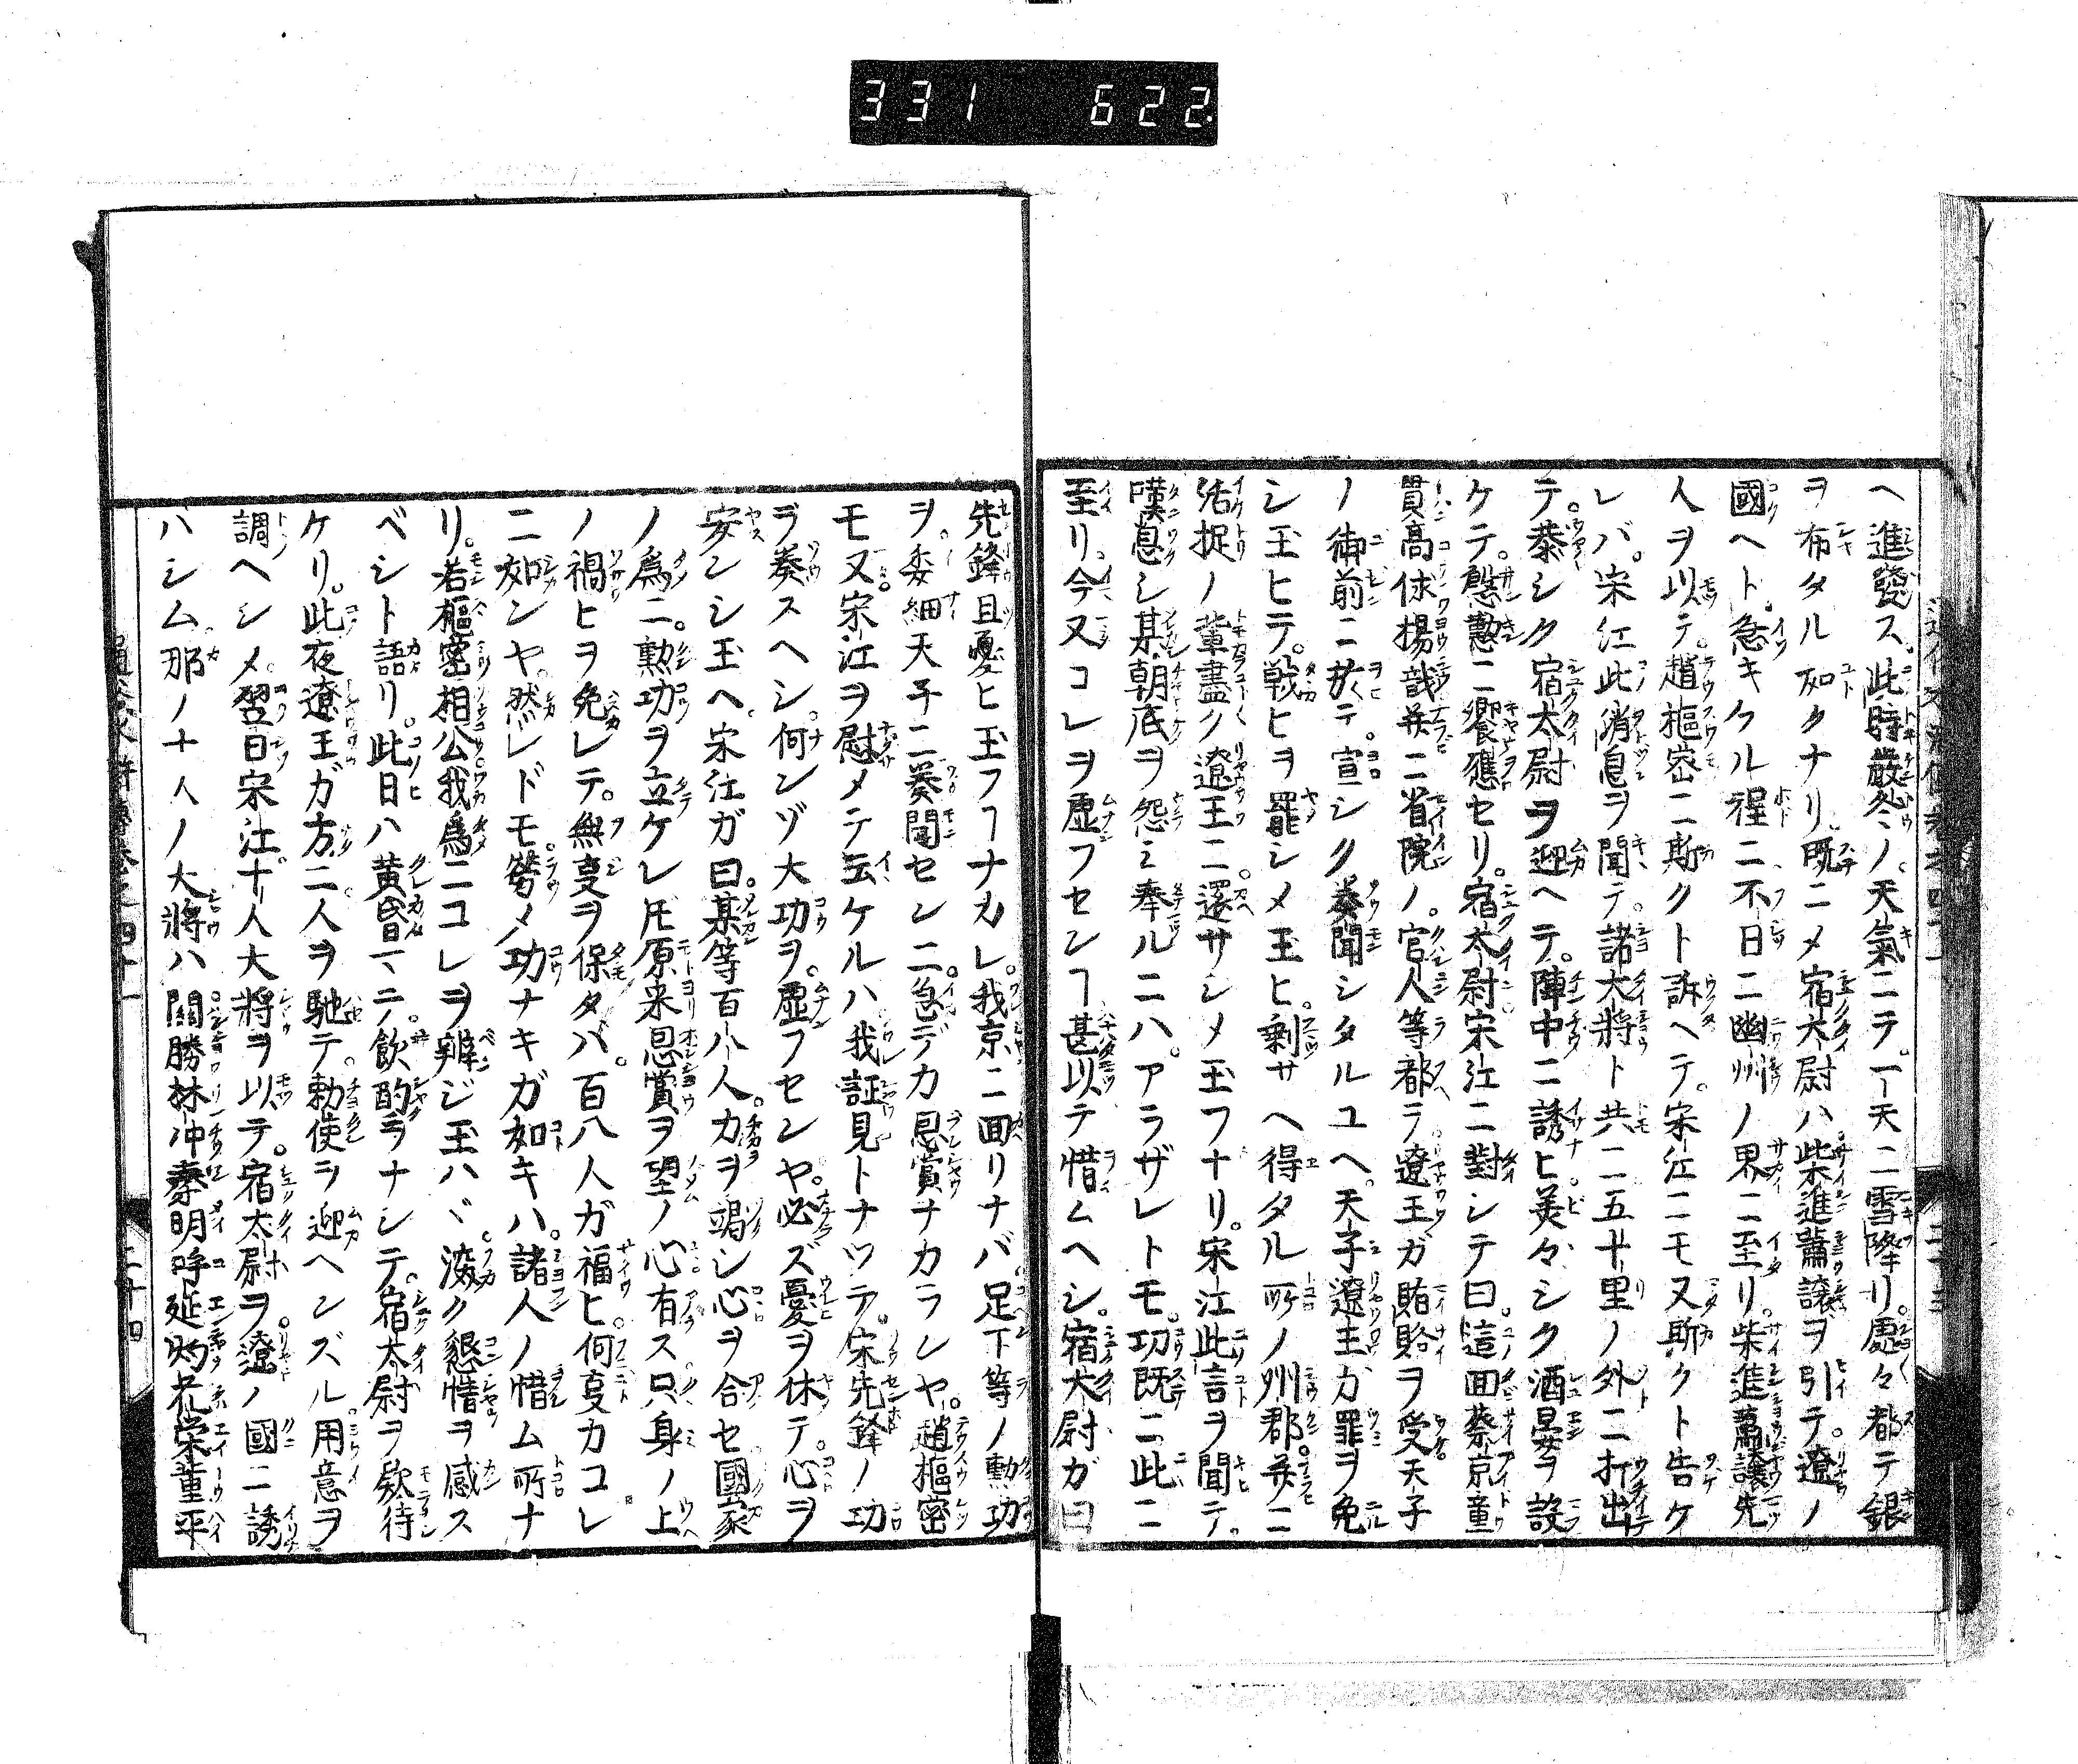 331 622
ヘ進發ス。此時嚴冬ノ天氣ニテ。一天ニ雪降リ。處々都テ銀
ヲ布タル如クナリ。既ニメ宿太尉ハ柴進蕭譲ヲ引テ。遼ノ
國ヘト急キケル程ニ不日ニ幽州ノ界ニ至リ。柴進蕭譲先
人ヲ以テ。趙樞密ニ斯クト訴ヘテ。宋江ニモ又斯クト告ケ
レバ。宋江此消息ヲ聞テ。諸大將ト共ニ五十里ノ外ニ打出
テ。恭シク宿太尉ヲ迎ヘテ。陣中ニ誘ヒ。美々シク酒宴ヲ設
ケテ。慇懃ニ饗應セリ。宿太尉宋江ニ對シテ曰。這回蔡京童
貫高俅楊戩并ニ省院ノ。官人等都テ遼王ガ賄賂ヲ受天子
ノ御前ニ於テ。宣シク奏聞シタルユヘ。天子遼主カ罪ヲ免
シ玉ヒテ。戦ヒヲ罷シメ玉ヒ。剰サヘ得タル所ノ州郡。并ニ
活捉ノ輩盡ク遼王ニ。還サシメ玉フナリ。宋江此言ヲ聞テ。
嘆息シ某朝底ヲ怨ミ奉ルニハ。アラザレトモ。功既ニ此ニ
至リ。今又コレヲ虚フセンヿ甚以テ惜ムヘシ。宿太尉ガ曰
先鋒且憂ヒ玉フヿナカレ。我京ニ面リナバ足下等ノ勲功
ヲ。委細天子ニ奏聞センニ。急デカ恩賞ナカランヤ。趙樞密
モ又。宋江ヲ慰メテ云ケルハ我証見トナツテ。宋先鋒ノ功
ヲ奏スヘシ。何ンゾ大功ヲ。虚フセンヤ。必ズ憂ヲ休テ。心ヲ
安ンシ玉ヘ。宋江ガ曰。某等百八人。力ヲ竭シ心ヲ合セ國家
ノ爲ニ。勲功ヲ立ケレ𪜈原来恩賞ヲ望ノ心有ス只身ノ上
ノ禍ヒヲ免レテ。無㕝ヲ保タバ。百八人ガ福ヒ何㕝カコレ
ニ如ンヤ。然レドモ。勞メ功ナキガ如キハ。諸人ノ惜ム所ナ
リ。若樞密相公我爲ニコレヲ辨ジ玉ハヾ。深ク懇惜ヲ感ス
ベシト語リ。此日ハ黄昏マテ飲酌ヲナシテ。宿太尉ヲ欵待
ケリ。此夜遼王ガ方。ニ人ヲ馳テ。勅使ヲ迎ヘンズル用意ヲ
調ヘシメ。翌日宋江十人大將ヲ以テ。宿太尉ヲ。遼ノ國ニ誘
ハシム那ノ十人ノ大將ハ關勝林冲秦明呼延灼花榮董平